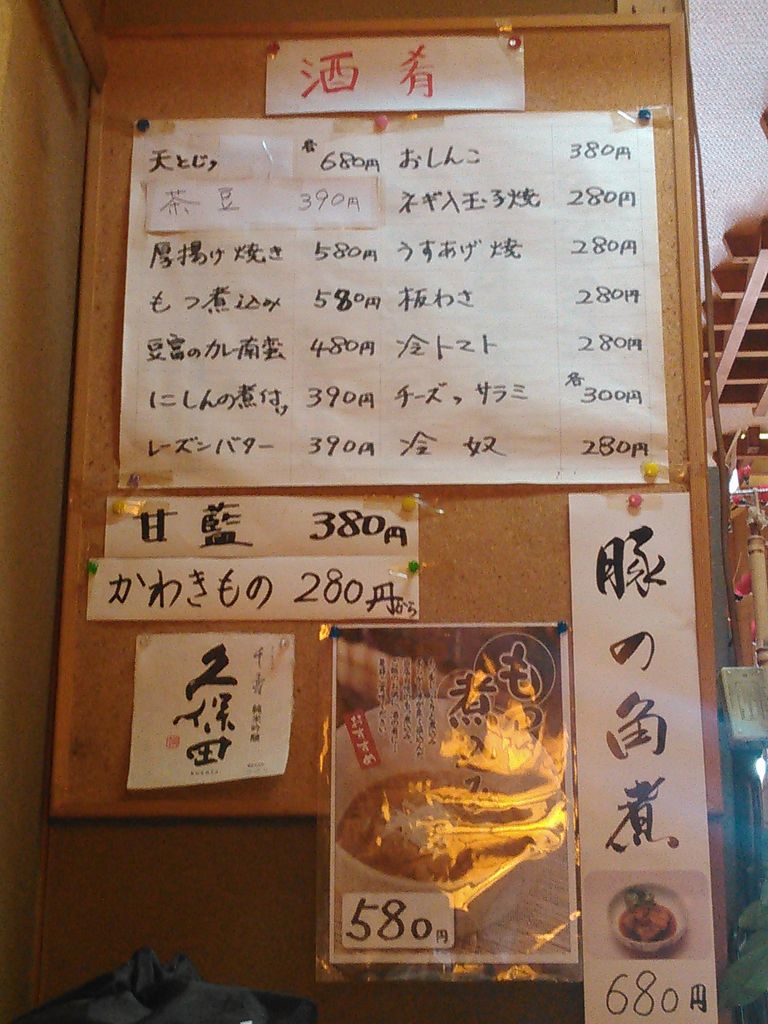 酒肴
天とじ 各680円
茶豆 390円
厚揚げ焼き 580円
もつ煮込み 580円
豆富のカレー南蛮 480円
にしんの煮付 390円
レーズンバター 390円
おしんこ 380円
ネギ入玉子焼 280円
うすあげ焼 280円
板わさ 280円
冷トマト 280円
チーズ、サラミ 各300円
冷奴 280円
甘藍 380円
かわきもの 280円から
千寿
久保田
純米吟醸
KUBOTA
もつ
煮込み
おすすめ
580円
豚の角煮
680円